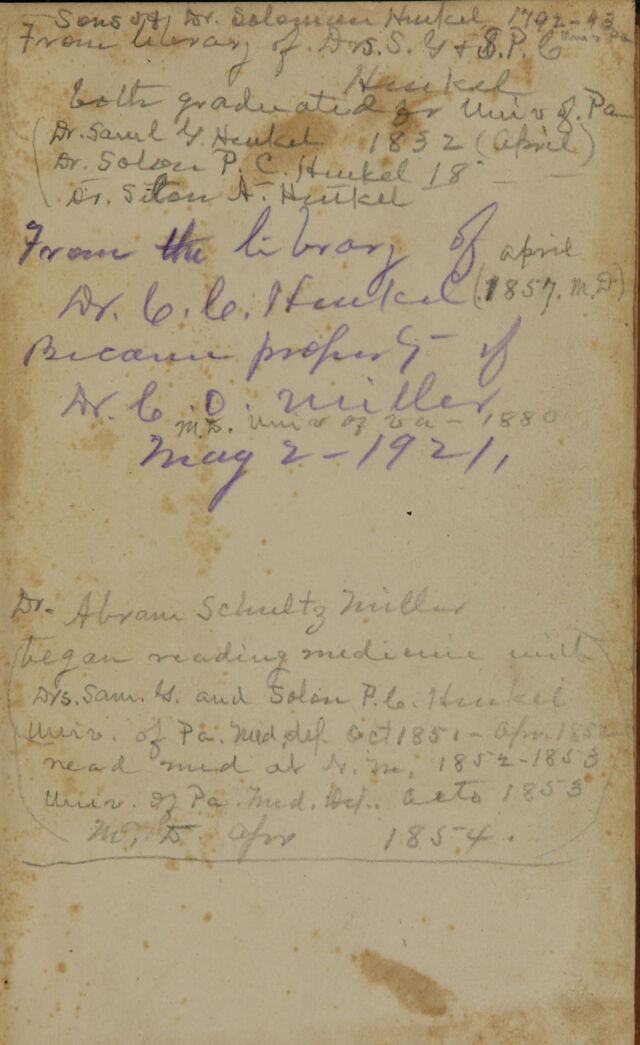 Sons of Dr. Solomon Henkel 1792-93
Univ Pa
From library of Drs. S. G & S. P. C
Henkel
both graduated fr Univ of. Pa
Dr. Saml G. Henkel 1832 (April)
Dr. Solon P. C. Henkel 18 - -
Dr. Silon A. Henkel
From the library of april
Dr. C. C. Henkel (1857. M.D)
Became property of
Dr. C. O. Miller
M.D. Univ of Va - 1880
May 2 - 1921,
Dr. Abram Schultz Miller
began reading medicine with
Drs. Sam. G. and Solon P. C. Henkel
Univ. of Pa. Med. dep. Oct 1851 - Apr. 1852
read med at N. M. 1852-1853
Univ. of Pa. Med. Dep. Octo 1853
M, D Apr 1854.